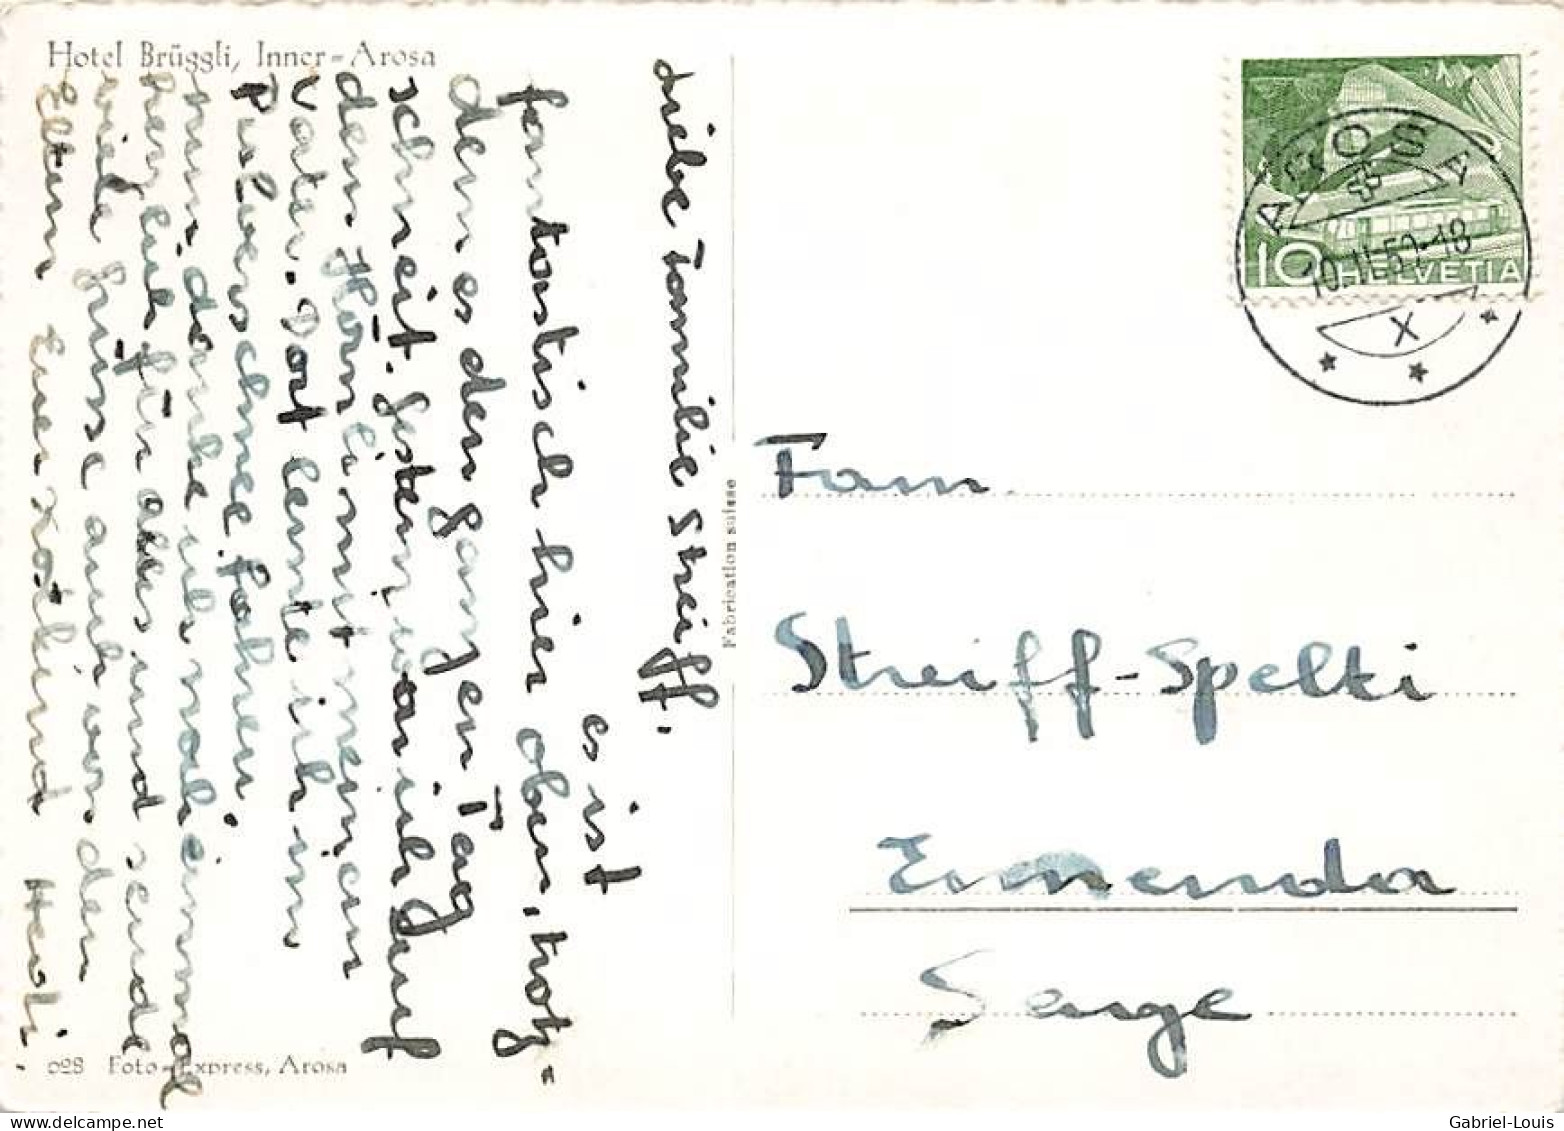 Hotel Brüggli, Inner-Arosa
Liebe Familie Streiff.
es ist
fantastisch hier oben, trotz-
dem es den ganzen Tag
schneit. Gestern war ich auf
dem Hörnli mit meinem
Vater. Dort lernte ich im
Pulverschnee fahren.
Nun danke ich noch einmal
herzlich für alles und sende
viele Grüsse auch von den
Eltern Euer Heidi
028 Foto-Express, Arosa
Fabrication suisse
AROSA
10.II.50-18
X
10 HELVETIA
Fam.
Streiff-Spelti
Ennenda
Gabriel-Louis